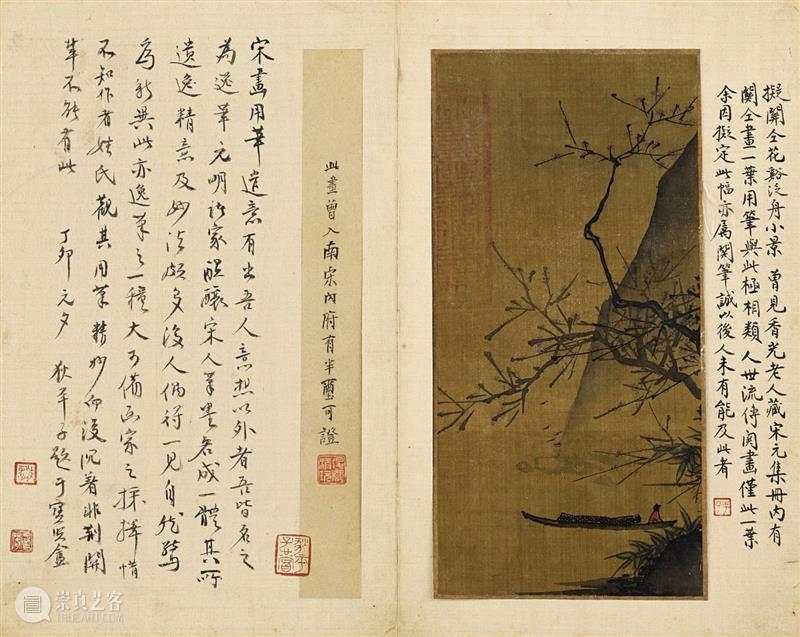 擬關仝花谿泛舟小景 曾見香光老人藏宋元集冊內有
關仝畫一葉用筆與此極相類 人世流傳関畫僅此一葉
余因擬定此幅亦屬関筆誠以後人未有能及此者
此畫曾入南宋內府有半璽可證
宋畫用筆遣意有出吾人意想以外者吾皆名之
為逸筆元明諸家醞釀宋人筆墨各成一體其所
遺逸精意及妙法頗多後人偶得一見自然驚
為新異此亦逸筆之一種大可備画家之採擇惜
不知作者姓氏觀其用筆精妙而沉著非荊關
輩不能有此 丁卯元夕 狄平子題于盦
崇真艺客